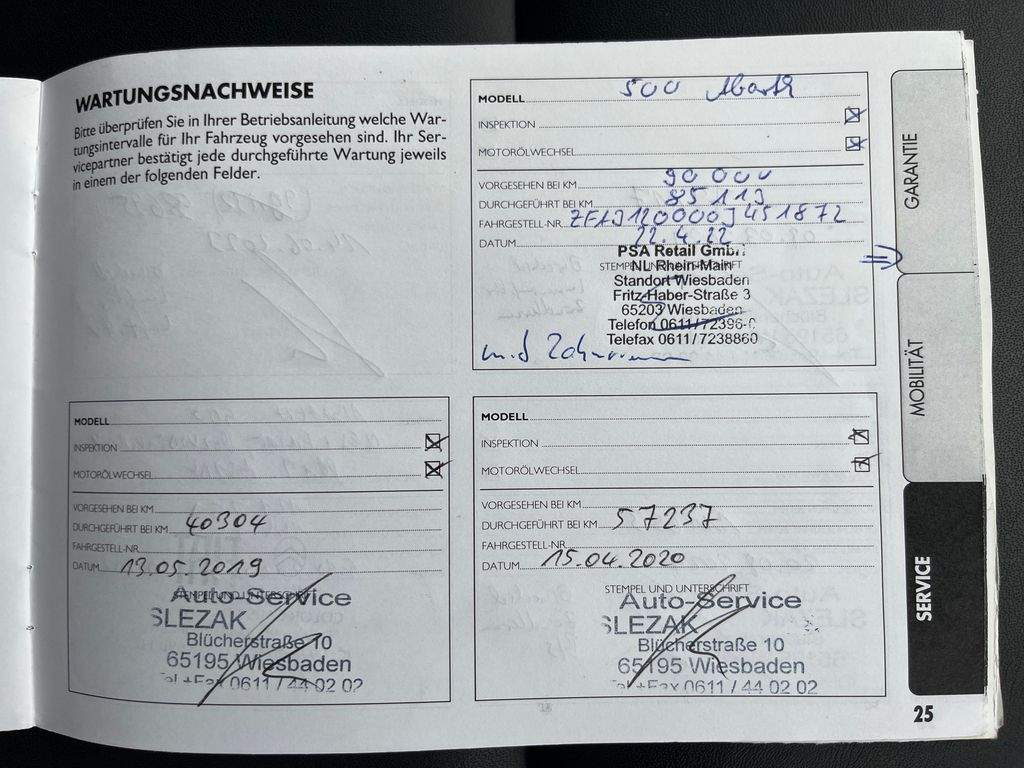 WARTUNGSNACHWEISE
Bitte überprüfen Sie in Ihrer Betriebsanleitung welche War-
tungsintervalle für Ihr Fahrzeug vorgesehen sind. Ihr Ser-
vicepartner bestätigt jede durchgeführte Wartung jeweils
in einem der folgenden Felder.
MODELL 500 Abarth
INSPEKTION
MOTORÖLWECHSEL
VORGESEHEN BEI KM 90 000
DURCHGEFÜHRT BEI KM 85113
FAHRGESTELL-NR. ZFAJ120000J451872
DATUM 22.4.22
STEMPEL UND UNTERSCHRIFT
PSA Retail GmbH
NL Rhein-Main
Standort Wiesbaden
Fritz-Haber-Straße 3
65203 Wiesbaden
Telefon 0611/72396-0
Telefax 0611/7238860
mit Zahnriemen
MODELL
INSPEKTION
MOTORÖLWECHSEL
VORGESEHEN BEI KM
DURCHGEFÜHRT BEI KM 40304
FAHRGESTELL-NR.
DATUM 13.05.2019
STEMPEL UND UNTERSCHRIFT
Auto-Service
SLEZAK
Blücherstraße 10
65195 Wiesbaden
Tel+Fax 0611 / 44 02 02
MODELL
INSPEKTION
MOTORÖLWECHSEL
VORGESEHEN BEI KM
DURCHGEFÜHRT BEI KM 57237
FAHRGESTELL-NR.
DATUM 15.04.2020
STEMPEL UND UNTERSCHRIFT
Auto-Service
SLEZAK
Blücherstraße 10
65195 Wiesbaden
Tel+Fax 0611 / 44 02 02
GARANTIE
MOBILITÄT
SERVICE
25